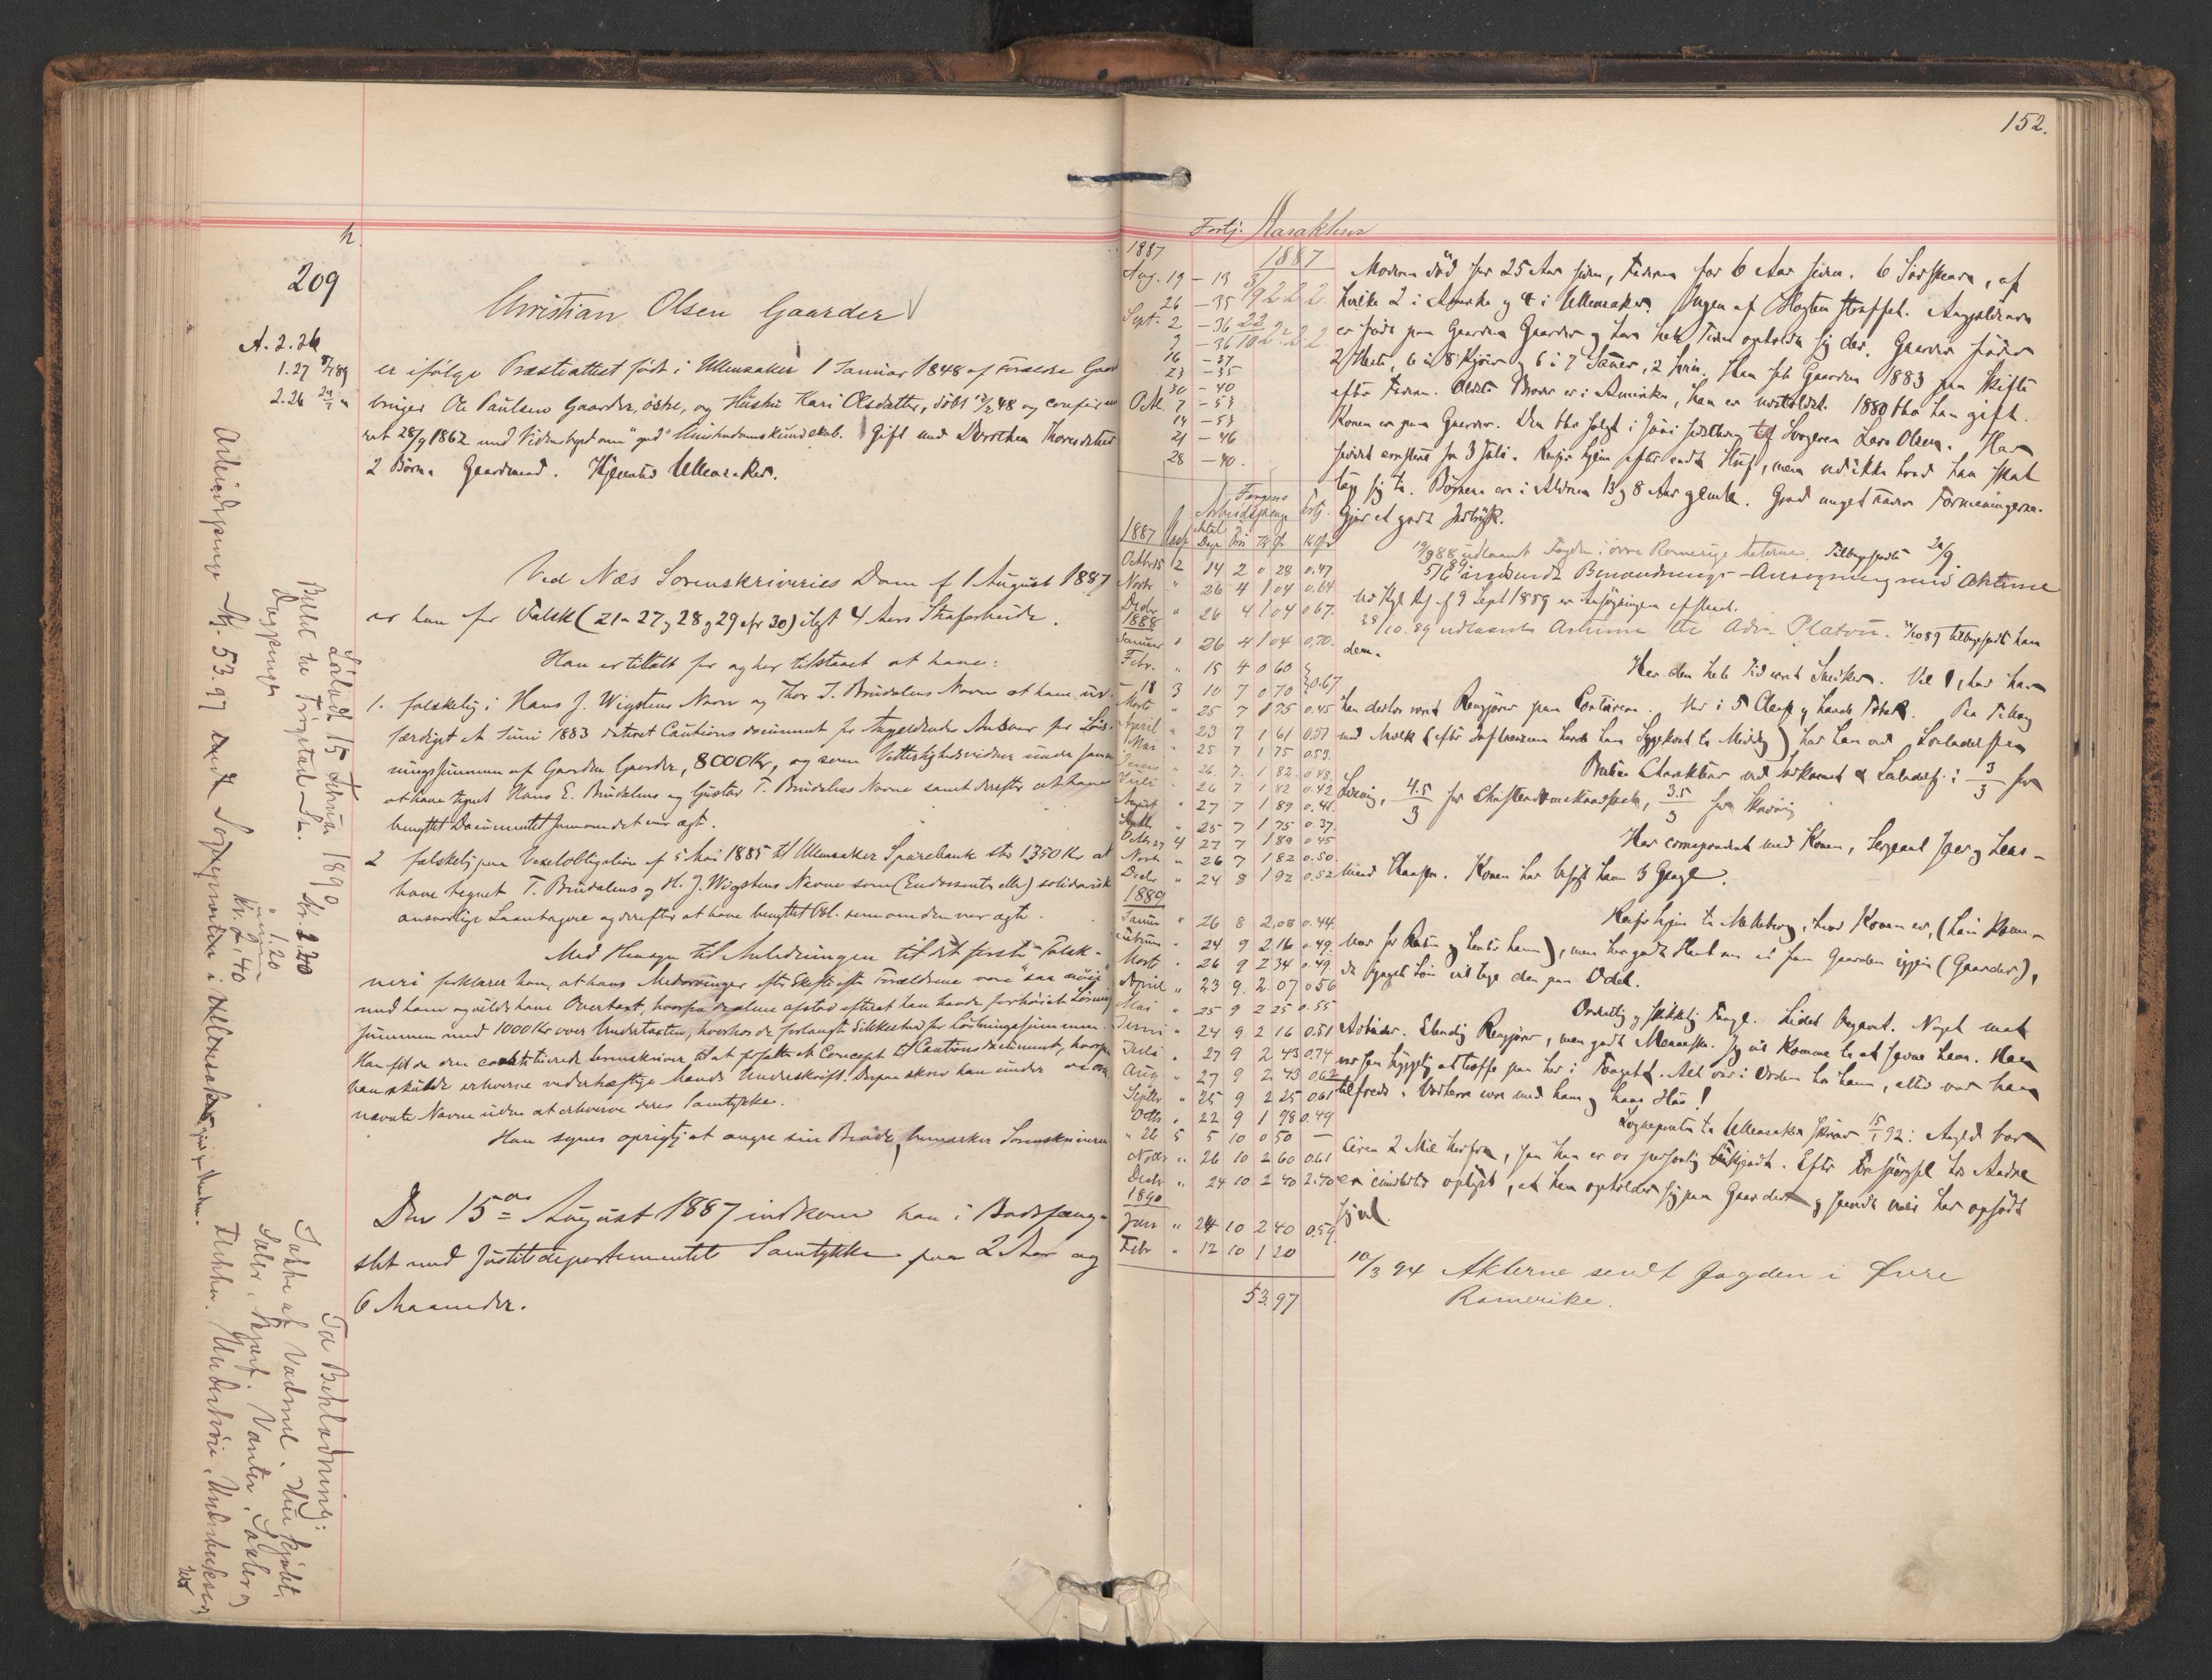 h.
209
Christian Olsen Gaarder
A. 2.26
1.27 8/7 89
2.26
er ifølge Præstiattest født i Ullensaker 1 Januar 1848 af Forældre Gaard
bruger Ole Paulsen Gaarder, østre, og Hustru Kari Olsdatter, døbt 13/2 48 og confirme
ret 28/9 1862 med Vidnesbyrd om "god" Christendomskundskab. Gift med Dorothea Thoresdatter
2 Børn. Gaardmand. Hjemsted Ullensaker.
Ved Næs Sorenskriveries Dom af 1 August 1887
er han for Falsk (21-27, 28 g 29 cfr 30) ilagt 4 Aars Strafarbeide.
Han er tiltalt for og har tilstaaet at have:
1. falskelig i Hans J. Wigstens Navn og Thor T. Brudalens Navn at have ud-
færdiget et Juni 1883 dateret Cautionsdocument for Angjeldendes Ansvar for Løs-
ningssummen af Gaarden Gaarder, 8000 Kr, og som Vitterlighedsvidner under samme
at have tegnet Hans E. Brudalens og Gustav T. Brudalens Navne samt derefter at have
benyttet Documentet som om det var ægte.
2 falskelig paa Vexelobligation af 5 Mai 1885 til Ullensaker Sparebank stor 1350 Kr at
have tegnet T. Brudalens og H. J. Wigstens Navne som (Endossenter eller) solidarisk
ansvarlige Laantagere og derefter at have benyttet Obl. som om den var ægte.
Med Hensyn til Anledningen til sit første Falsk-
neri forklarer han, at hans Medarvinger efter Skifte efter Forældrene vare "saa nøie"
med ham og vilde have Overtaxt, hvorfra de alene afstod efterat han havde forhøiet Løsnings
summen med 1000 Kr over Undertaxten, hvorhos de forlangte Sikkerhed for Løsningssummen.
Han fik da den constituerede Sorenskriver til at forfatte et Concept til Cautionsdocument, hvorpaa
han skulde erhverve vederhæftige Mænds Underskrift. Derpaa skrev han under de oven
nævnte Navne uden at erhverve deres Samtykke.
Han synes oprigtig at angre sin Brøde, bemærker Sorenskriveren
Den 15de August 1887 indkom han i Bodsfæng-
slet med Justitsdepartementets Samtykke paa 2 Aar og
6 Maaneder.
Arbeidspenge Kr. 53.97 sendt Sognepræsten i Ullensaker
Løsladt 15 Februar 1890
Billet til Trøgstad St. Kr. 2.20
Dagpenger 1.20
Kr. 3,40
Ia Beklædning:
Jakke af Vadmel. Hue kjøbt.
Seler, Skjerf. Vanter. Sokker og
Trikker. Undertrøie, Underbukser og
152.
Fortj. Karakter
1887
Aug. 19 – 13
26 – 35
Sept. 2 – 36
9 – 36
16 – 37
23 – 35
30 – 40
Oct. 7 – 53
14 – 53
21 – 46
28 – 40.
1887
3/9 2.2.2.
23/10 2.2.2.2
Moderen død for 25 Aar siden, Faderen for 6 Aar siden. 6 Søskende, af
hvilke 2 i Amerika og 4 i Ullensaker. Ingen af Slægten straffet. Angjældende
er født paa Gaarden Gaarder og har hele Tiden opholdt sig der. Gaarden føder
2 Heste, 6 à 8 Kjør og 6 à 7 Sauer, 2 Sviin. Han fik Gaarden 1883 paa Skifte
efter Faderen. Ældste Broder er i Amerika, han er næstældst. 1880 blev han gift.
Konen er paa Gaarder. Den blev solgt i Juni sidstleden til Svogeren Lars Olsen. Har
siddet arresteret fra 3 Juli. Reiser hjem efter endt Straf, men ved ikke hvad han skal
tage sig til. Børnene er i Alderen 13 og 8 Aar gamle. Græd meget under Formaningerne.
Gjør et godt Indtryk.
Fangens
Arbeidspenge Fortj.
1887 Klasse Antal Dage Øre Kr Øre Kr Øre
Octbr 15 2 14 2 0 28 0.47
Novbr " 26 4 1 04 0.64
Decbr " 26 4 1 04 0.67.
1888
Januar " 26 4 1 04 0,70.
Febr. " 15 4 0 60
– 18 3 10 7 0 70 0.67
Marts " 25 7 1 75 0.45
April " 23 7 1 61 0.57
Mai " 25 7 1 75 0.53.
Juni " 26. 7. 1 82. 0.48.
Juli " 26 7 1 82 0.42
August " 27 7 1 89 0.41.
Septbr " 25 7 1 75 0.37.
Octbr 27 4 27 7 1 89 0.45
Novbr " 26 7 1 82 0.50.
Decbr " 24 8 1 92 0.52
1889
Januar " 26 8 2,08 0.44.
Februar " 24 9 2 16 0.49.
Marts " 26 9 2 34 0.49.
April " 23 9. 2.07 0.56
Mai " 25 9 2 25 0.55
Juni " 24 9 2 16 0.51
Juli " 27 9 2 43 0.74
Aug " 27 9 2 43 0.62
Septbr " 25 9 2 25 0.61
Octbr " 22 9 1 98 0.49
" 26 5 5 10 0 50 —
Novbr " 26 10 2 60 0.61
Decbr " 24 10 2 40 2.40
1890
Jan " 24 10 2 40 0.59
Febr " 12 10 1 20
53.97
19/9 88 udlaant Fogden i øvre Romerige Acterne. Tilbagesendt 24/9.
5/6 89 indsendt Benaadnings-Ansøgning med Akterne
Ved Kgl Res af 9 Sept 1889 er Ansøgningen afslaaet.
28/10.89 udlaantes Acterne til Adv. Platou. 31/10 89 tilbagesendte han
dem.
Har den hele Tid været Snedker. Vel 1 Aar har
han derhos været Rengjører paa Contorerne. Var i 5 Classe og havde Tobak. Paa Tillæg
med Melk (efter Influenzaen havde han Sygekost til Middag) har han ved Løsladelsen
Bedste Charakterer ved Indkomst & Løsladelse: 3/3 for
Læsning, 4.5/3 for Christendomskundskab, 3.5/3 for Skrivning
Har correspondent med Konen, Sergeant Iger og Lens-
mand Klausen. Konen har besøgt ham 3 Gange.
Reiser hjem til Melleberg, hvor Konen er, (hun kom-
mer for Resten og henter ham), men har godt Haab om at faa Gaarden igjen (Gaarder),
da hans yngste Søn vil tage den paa Odel.
Ordentlig og skikkelig Fange. Lidet begavet. Noget mat
Arbeider. Elendig Rengjører, men godt Menneske. Jeg vil komme til at savne ham. Han
var saa hyggelig at træffe paa her i Fængslet. Alt var i Orden hos ham, altid var han
tilfreds. Vorherre være med ham og hans Hus!
Sognepresten til Ullensaker skriver 15/1 92: Angjæld bor
circa 2 Mil herfra, saa han er os personlig ukjendt. Efter Forspørgsel hos Andre
er imidlertid oplyst, at han opholder sig paa Gaarder og hidtil har opført
sig vel.
10/3 94 Akterne sendt Fogden i Øvre
Romerike.